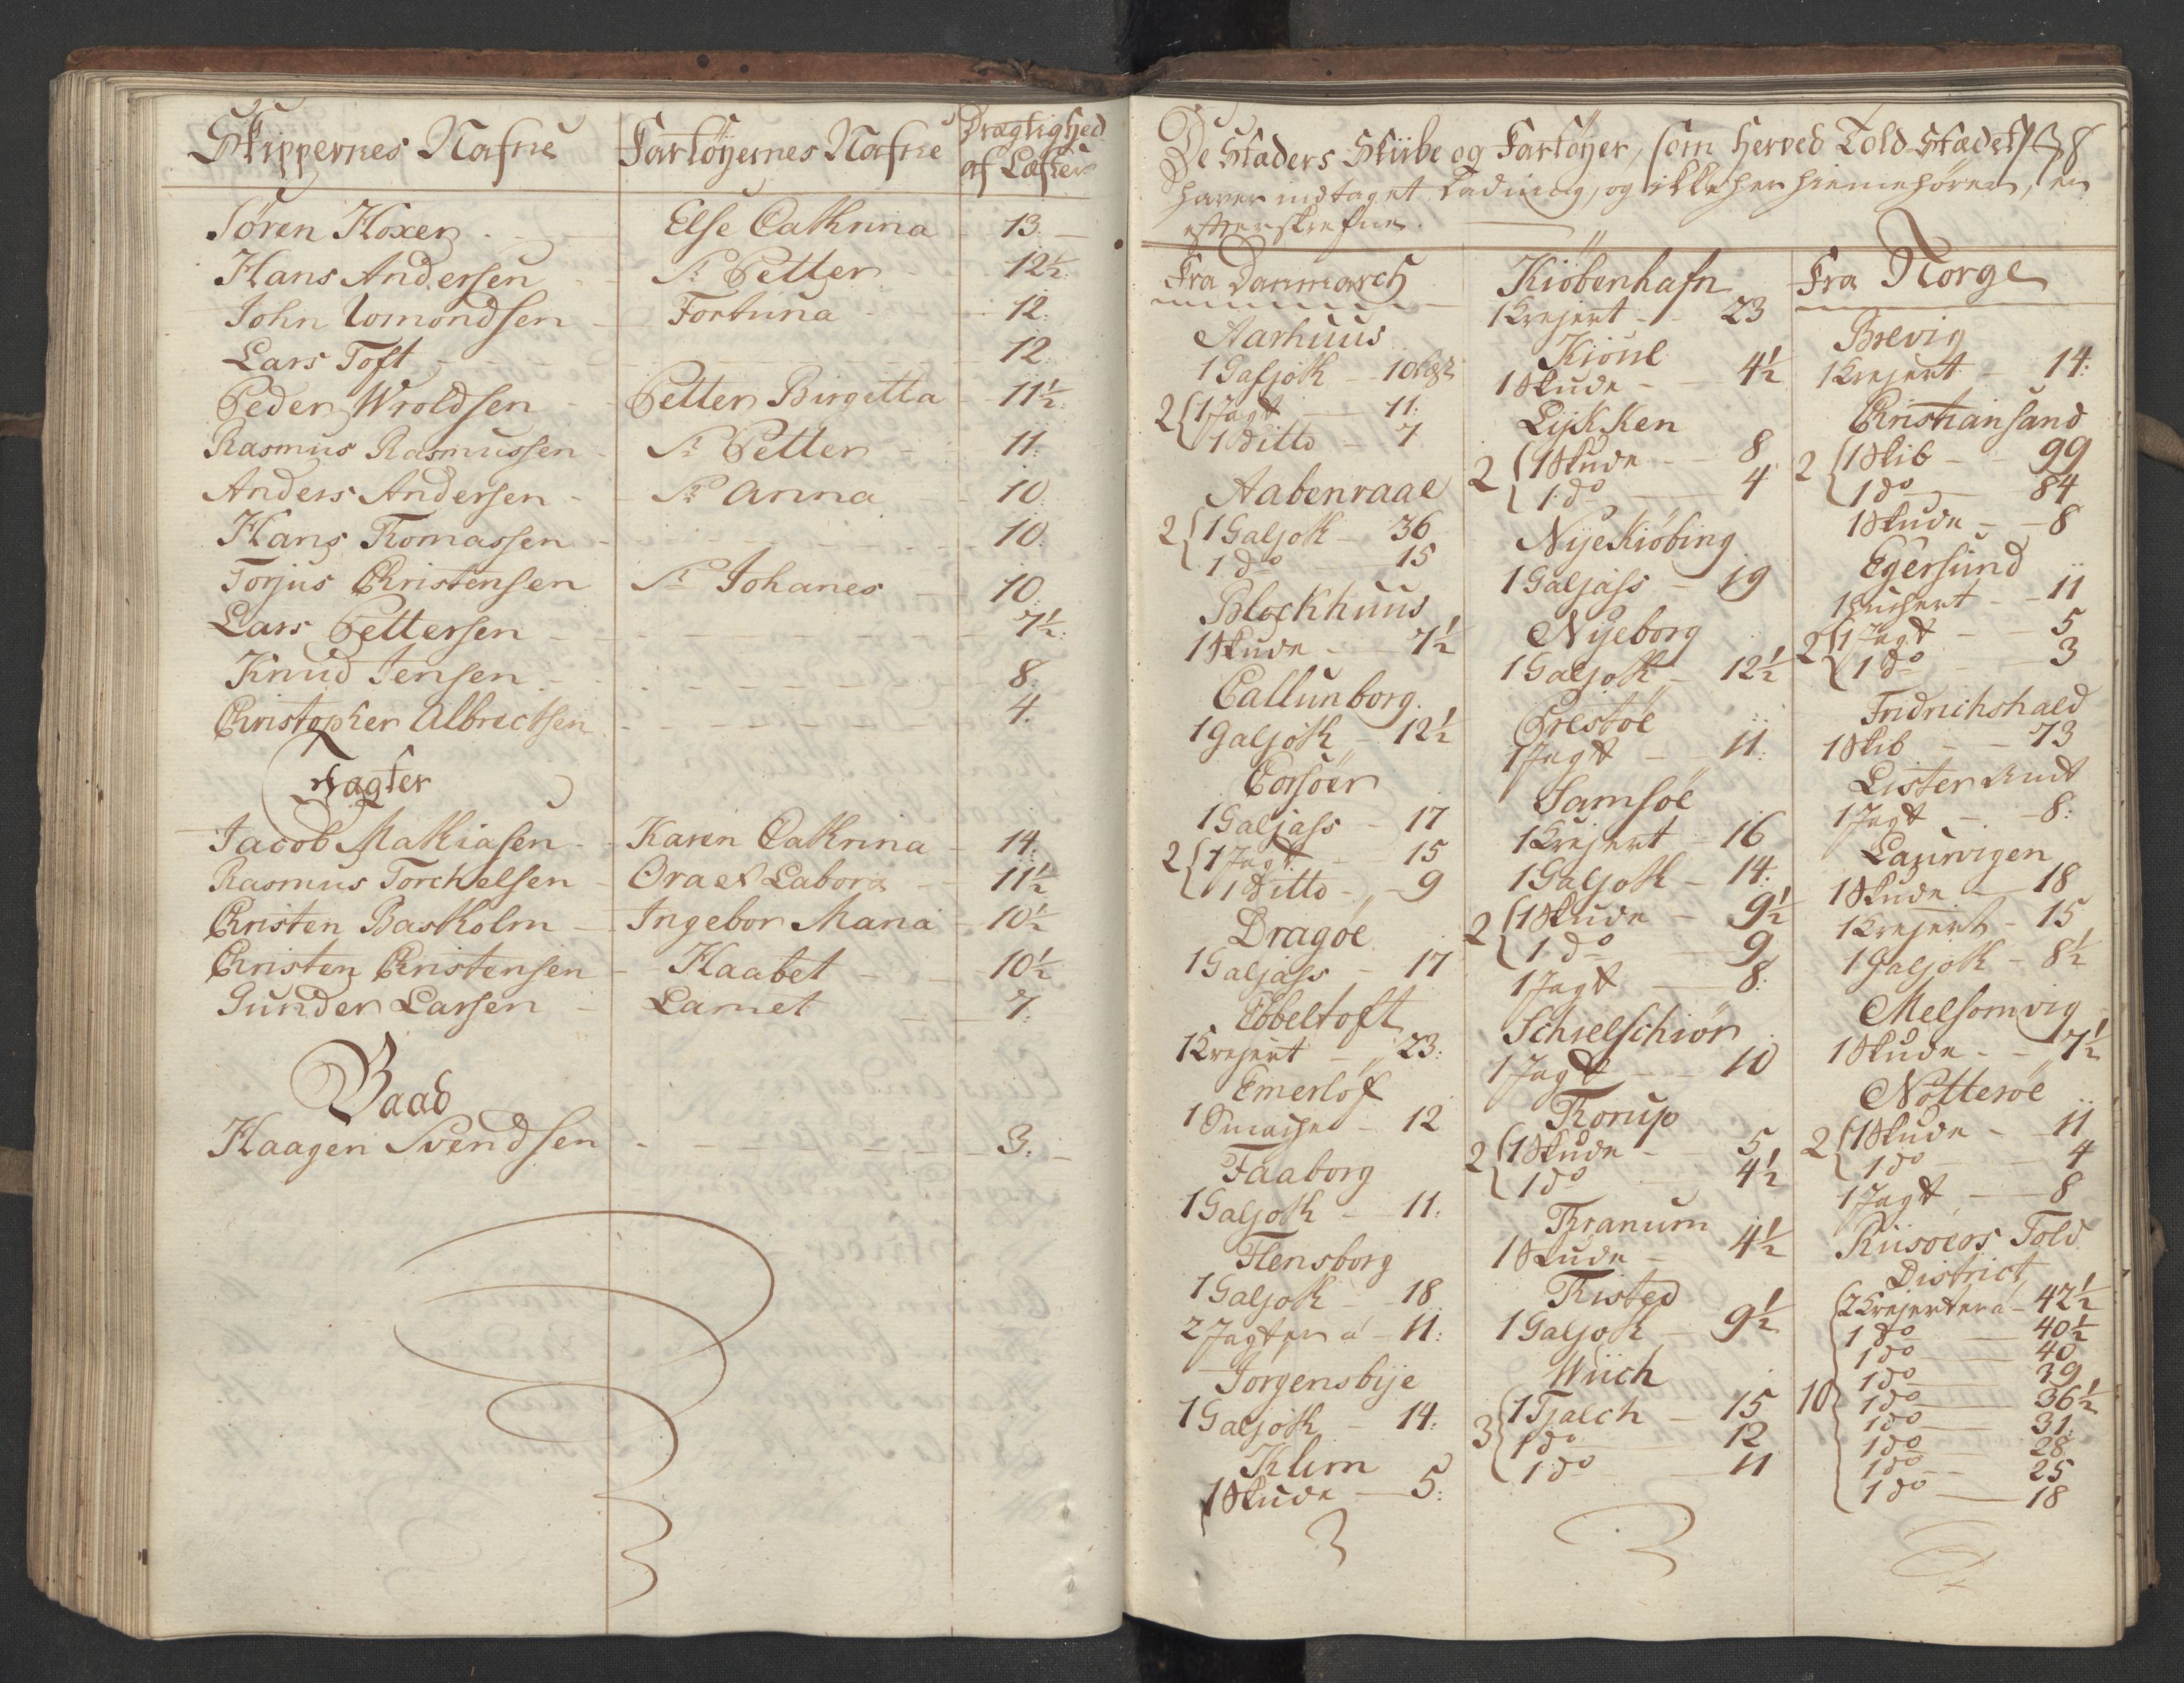 Skippernes Nafne | Fartöyernes Nafne | Drægtighed af Læster
Sören Hoxer | Else Cathrina | 13
Hans Andersen | St Petter | 12½
John Lomondsen | Fortuna | 12
Lars Toft | 12
Peder Wroldsen | Petter Birgitta | 11½
Rasmus Rasmussen | St Petter | 11
Anders Andersen | St Anna | 10
Hans Thomassen | 10
Torjus Christensen | St Johanes | 10
Lars Pettersen | 7½
Knud Jensen | 8
Christopher Albrectsen | 4
Jagter
Jacob Mathiasen | Karen Cathrina | 14
Rasmus Torchelsen | Ora et Labora | 11½
Christen Bastholm | Ingebor Maria | 10½
Christen Christensen | Haabet | 10½
Gunder Larsen | Lamet | 7
Baad
Haagen Svendsen | 3
De Stæders Skibe og Fartöyer, som herved Told Stædet
haver indtaget Ladning, og ikke her hiemehörer, er
efterskrefne
Fra Danmarch
Aarhuus
1 Galjoth 10
2 { 1 Jagt 11
1 Ditto 7
Aabenraae
2 { 1 Galjoth 36
1 do 15
Blockhuus
1 Skude 7½
Callunborg
1 Galjoth 12½
Corsöer
1 Galjass 17
2 { 1 Jagt 15
1 Ditto 9
Dragöe
1 Galjass 17
Ebbeltoft
1 Krejert 23
Emerlöf
1 Smache 12
Faaborg
1 Galjoth 11
Flensborg
1 Galjoth 18
2 Jagter a 11
Jörgensbije
1 Galjoth 14
Klim
1 Skude 5
Kiöbenhafn
1 Krejert 23
Kiöul
1 Skude 4½
Lykken
2 { 1 Skude 8
1 do 4
Nije Kiöbing
1 Galjass 19
Nijeborg
1 Galjoth 12½
Prestöe
1 Jagt 11
Samsöe
1 Krejert 16
1 Galjoth 14
2 { 1 Skude 9½
1 do 9
1 Jagt 8
Schielschiör
1 Jagt 10
Thorup
2 { 1 Skude 5
1 do 4½
Thranum
1 Skude 4½
Thisted
1 Galjoth 9½
Wiich
3 { 1 Tjalch 15
1 do 12
1 do 11
Fra Norge
Brevig
1 Krejert 14
Christiansand
2 { 1 Skib 99
1 do 84
1 Skude 8
Egersund
1 Huchert 11
2 { 1 Jagt 5
1 do 3
Fridrichshald
1 Skib 73
Lister Amt
1 Jagt 8
Laurvigen
1 Skude 18
1 Krejert 15
1 Galjoth 8½
Melsomvig
1 Skude 7½
Nötteröe
2 { 1 Skude 11
1 do 4
1 Jagt 8
Riisöers Told
District
10 { 2 Krejerter a 42½
1 do 40½
1 do 40
1 do 39
1 do 36½
1 do 31
1 do 28
1 do 25
1 do 18